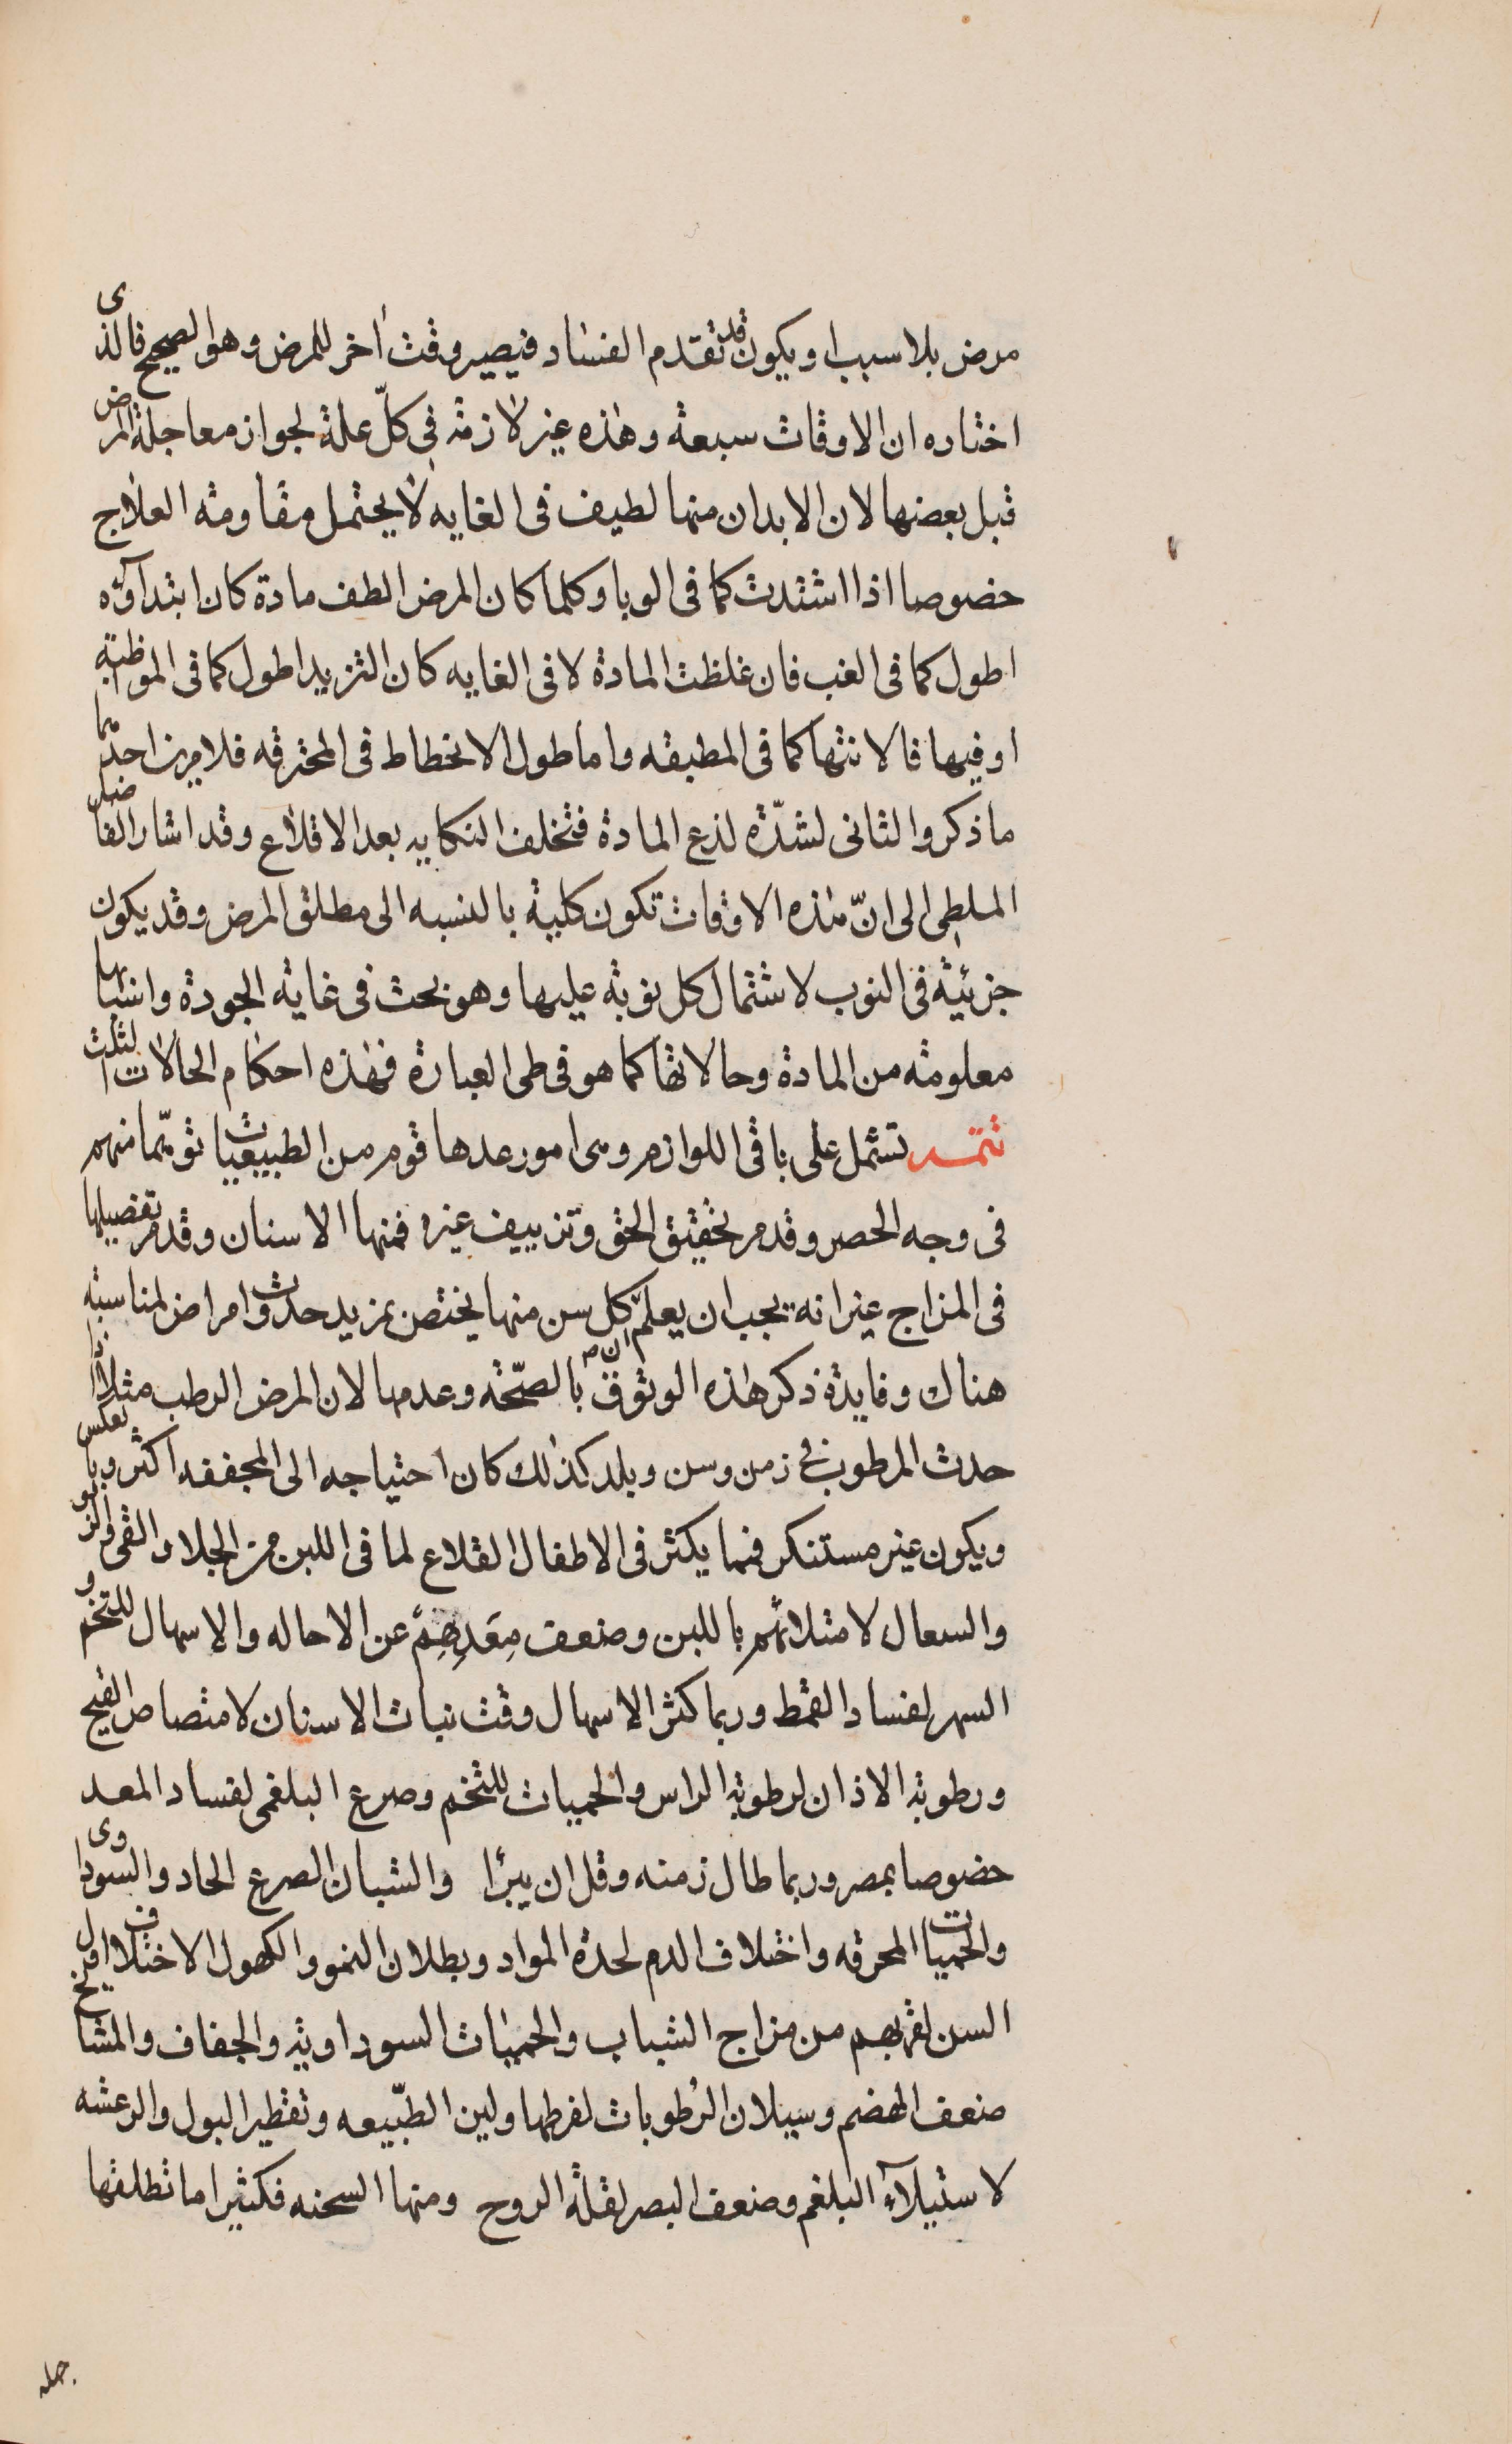 مرض بلا سبب او يكون قد تقدم الفساد فيصير وقت اخر للمرض وهو الصحيح فالذى
اختاره ان الاوقات سبعة وهذه غير لازمة فى كلّ علة لجواز معاجلة المرض
قبل بعضها لان الابدان منها لطيف فى الغايه لا يحتمل مقاومته العلاج
خصوصا اذا اشتدت كما فى الوبا وكلما كان المرض الطف مادة كان ابتداؤه
اطول كما فى الغب فان غلظت المادة لا فى الغايه كان التزيد اطول كما فى المواظبة
او فيها فالانتها كما فى المطبقه واما طول الانحطاط فى المحترقه فلامرين احدهما
ما ذكر والثانى لشدّة لذع المادة فتخلف النكايه بعد الاقلاع وقد اشار الفاضل
الملطى الى انّ هذه الاوقات تكون كلية بالنسبه الى مطلق المرض وقد يكون
جزئية فى النوب لاشتمال كل نوبة عليها وهو بحث فى غاية الجودة واسبابها
معلومة من المادة وحالاتها كما هو فى طى العبارة فهذه احكام الحالات الثلث
تتمـة تشتمل على باقى اللوازم وهى امور عدها قوم من الطبيعيات توهّما منهم
فى وجه الحصر وقد مر تحقيق الحق وتزييف غيره فمنها الاسنان وقد مر تفصيلها
فى المزاج غير انه يجب ان يعلم ان كل سن منها يختص بمزيد حدوث امراض لمناسبة
هناك وفايدة ذكر هذه الوثوق بالصّحة وعدمها لان المرض الرطب مثلا اذا
حدث المرطوب فى زمن وسن وبلد كذلك كان احتياجه الى المجففه اكثر وبالعكس
ويكون غير مستنكر فمما يكثر فى الاطفال القلاع لما فى اللبن من الجلا والقى والربو
والسعال لامتلائهم باللبن وضعف مِعَدِهِمْ عن الاحاله والاسهال للتخم و
السهر لفساد القمط وربما كثر الاسهال وقت نبات الاسنان لامتصاص القيح
ورطوبة الاذان لرطوبة الراس والحميات للتخم وصرع البلغمى لفساد المعد
خصوصا بمصر وربما طال زمنه وقل ان يبرأ والشبان الصرع الحاد والسّوداوى
والحميات المحرقه واختلاف الدم لحدة المواد وبطلان النمو والكهول الاختلاف اول
السن لقربهم من مزاج الشباب والحميات السوداوية والجفاف والمشايخ
ضعف الهضم وسيلان الرُطوبات لفرطها ولين الطّبيعه وتقطير البول والرعشه
لاستيلآء البلغم وضعف البصر لقلة الروح ومنها السحنه فكثيرا ما تطلقها